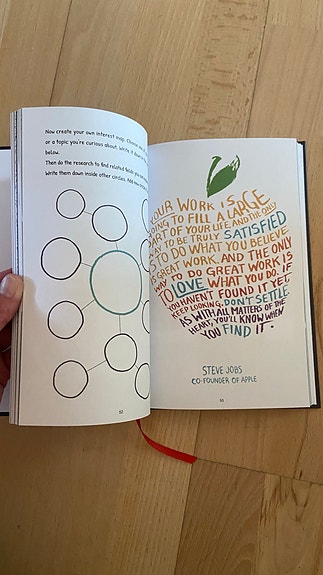 Now create your own interest map. Choose
or a topic you're curious about. Write it down in
below.
Then do the research to find related fields you
Write them down inside other circles. Add more
52
YOUR WORK IS
GOING TO FILL A LARGE
PART OF YOUR LIFE, AND THE ONLY
WAY TO BE TRULY SATISFIED
IS TO DO WHAT YOU BELIEVE
IS GREAT WORK. AND THE ONLY
WAY TO DO GREAT WORK IS
TO LOVE WHAT YOU DO. IF
YOU HAVEN'T FOUND IT YET,
KEEP LOOKING. DON'T SETTLE.
AS WITH ALL MATTERS OF THE
HEART, YOU'LL KNOW WHEN
YOU FIND IT.
STEVE JOBS
CO-FOUNDER OF APPLE
53